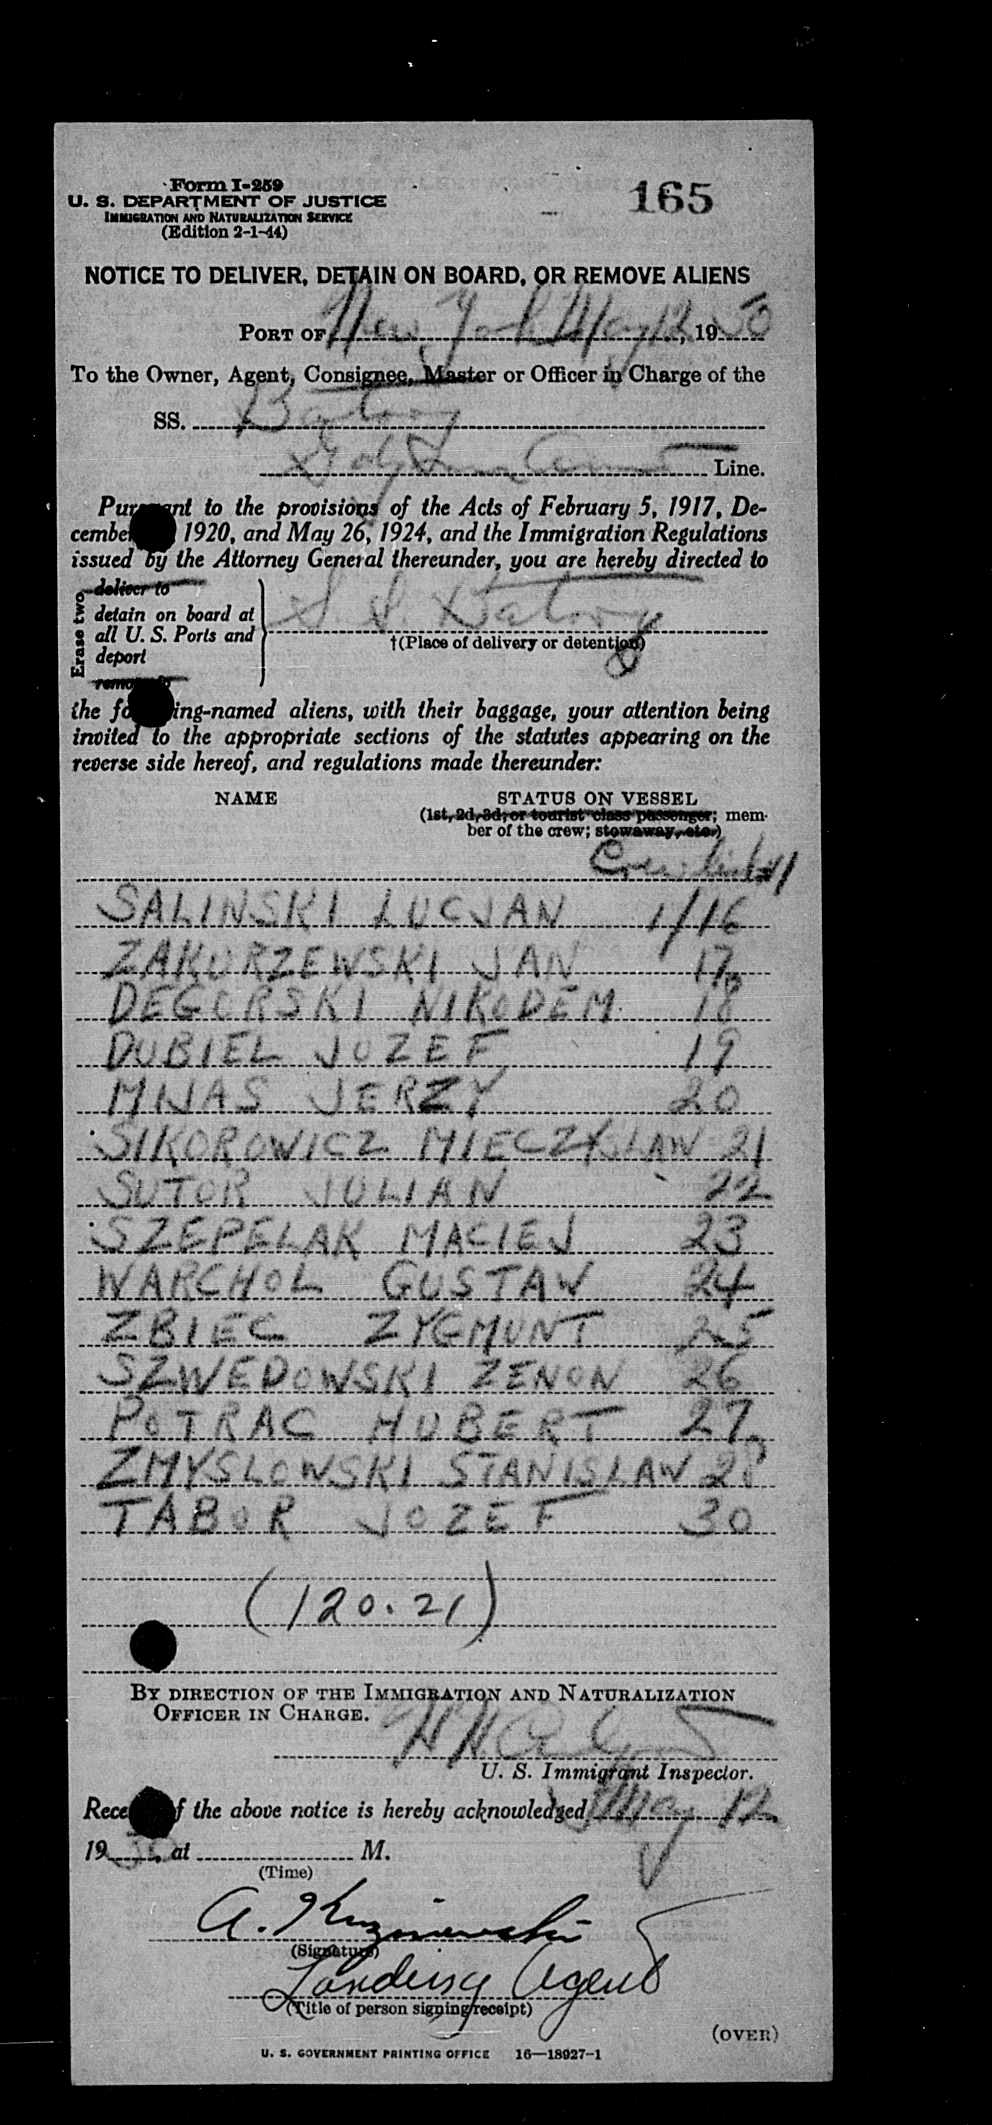 Form I-259
165
U. S. DEPARTMENT OF JUSTICE
IMMIGRATION AND NATURALIZATION SERVICE
(Edition 2-1-44)
NOTICE TO DELIVER, DETAIN ON BOARD, OR REMOVE ALIENS
PORT OF New York May 12, 1950
To the Owner, Agent, Consignee, Master or Officer in Charge of the
SS. Batory
Gdynia America Line.
Pursuant to the provisions of the Acts of February 5, 1917, De-
cember 1920, and May 26, 1924, and the Immigration Regulations
issued by the Attorney General thereunder, you are hereby directed to
Erase two
deliver to
detain on board at
all U. S. Ports and
deport
remove to
S. S. Batory
†(Place of delivery or detention)
the following-named aliens, with their baggage, your attention being
invited to the appropriate sections of the statutes appearing on the
reverse side hereof, and regulations made thereunder:
NAME STATUS ON VESSEL
(1st, 2d, 3d, or tourist class passenger; mem-
ber of the crew; stowaway, etc.)
Crew list #1
SALINSKI LUCJAN 1/16
ZAKURZEWSKI JAN 17
DEGORSKI NIKODEM 18
DUBIEL JOZEF 19
MIJAS JERZY 20
SIKOROWICZ MIECZYSLAW 21
SUTOR JULIAN 22
SZEPELAK MACIEJ 23
WARCHOL GUSTAW 24
ZBIEC ZYGMUNT 25
SZWEDOWSKI ZENON 26
POTRAC HUBERT 27
ZMYSLOWSKI STANISLAW 28
TABOR JOZEF 30
(120.21)
BY DIRECTION OF THE IMMIGRATION AND NATURALIZATION
OFFICER IN CHARGE.
U. S. Immigrant Inspector.
Receipt of the above notice is hereby acknowledged May 12
1950, at M.
(Time)
A. Kuzniewski
(Signature)
Landing Agent
(Title of person signing receipt)
(OVER)
U. S. GOVERNMENT PRINTING OFFICE 16—18927-1